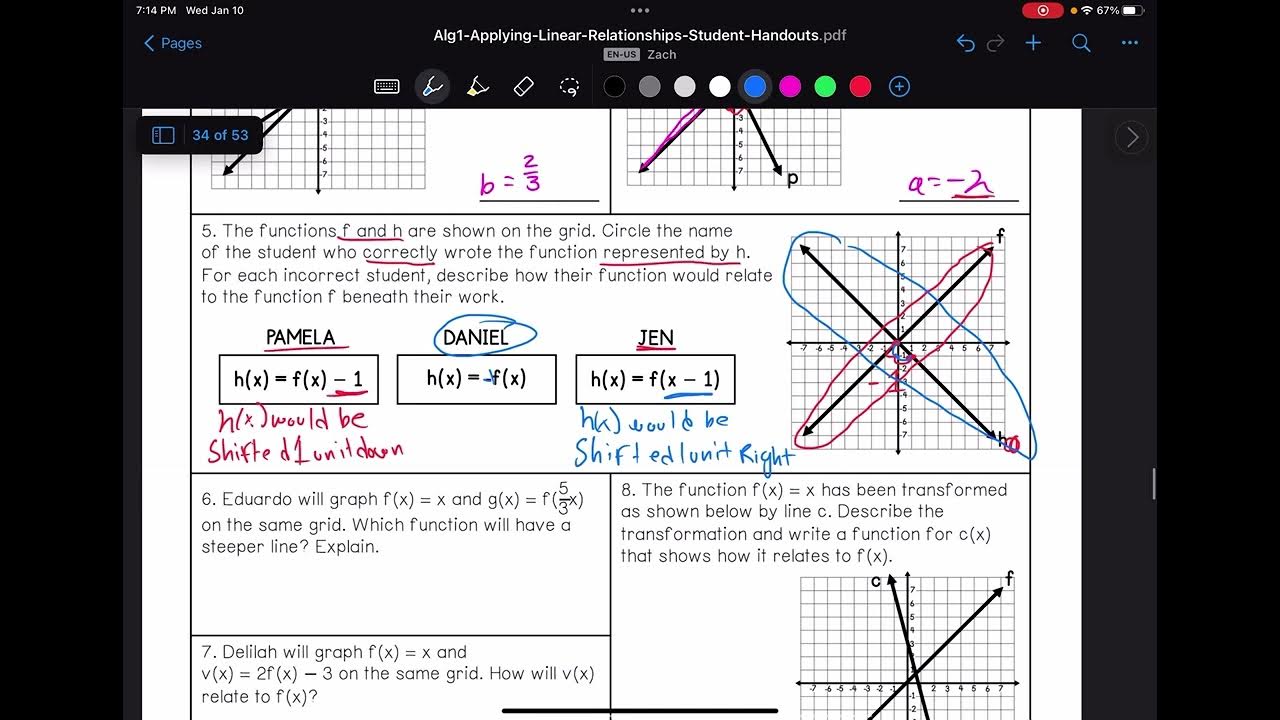 7:14 PM Wed Jan 10
67%
Pages
Alg1-Applying-Linear-Relationships-Student-Handouts.pdf
EN-US Zach
34 of 53
b = 2/3
p
a = -2
5. The functions f and h are shown on the grid. Circle the name
of the student who correctly wrote the function represented by h.
For each incorrect student, describe how their function would relate
to the function f beneath their work.
PAMELA
DANIEL
JEN
h(x) = f(x) – 1
h(x) = -f(x)
h(x) = f(x – 1)
h(x) would be
Shifted 1 unit down
h(x) would be
Shifted 1 unit Right
f
h
6. Eduardo will graph f(x) = x and g(x) = f(5/3x)
on the same grid. Which function will have a
steeper line? Explain.
7. Delilah will graph f(x) = x and
v(x) = 2f(x) – 3 on the same grid. How will v(x)
relate to f(x)?
8. The function f(x) = x has been transformed
as shown below by line c. Describe the
transformation and write a function for c(x)
that shows how it relates to f(x).
c
f